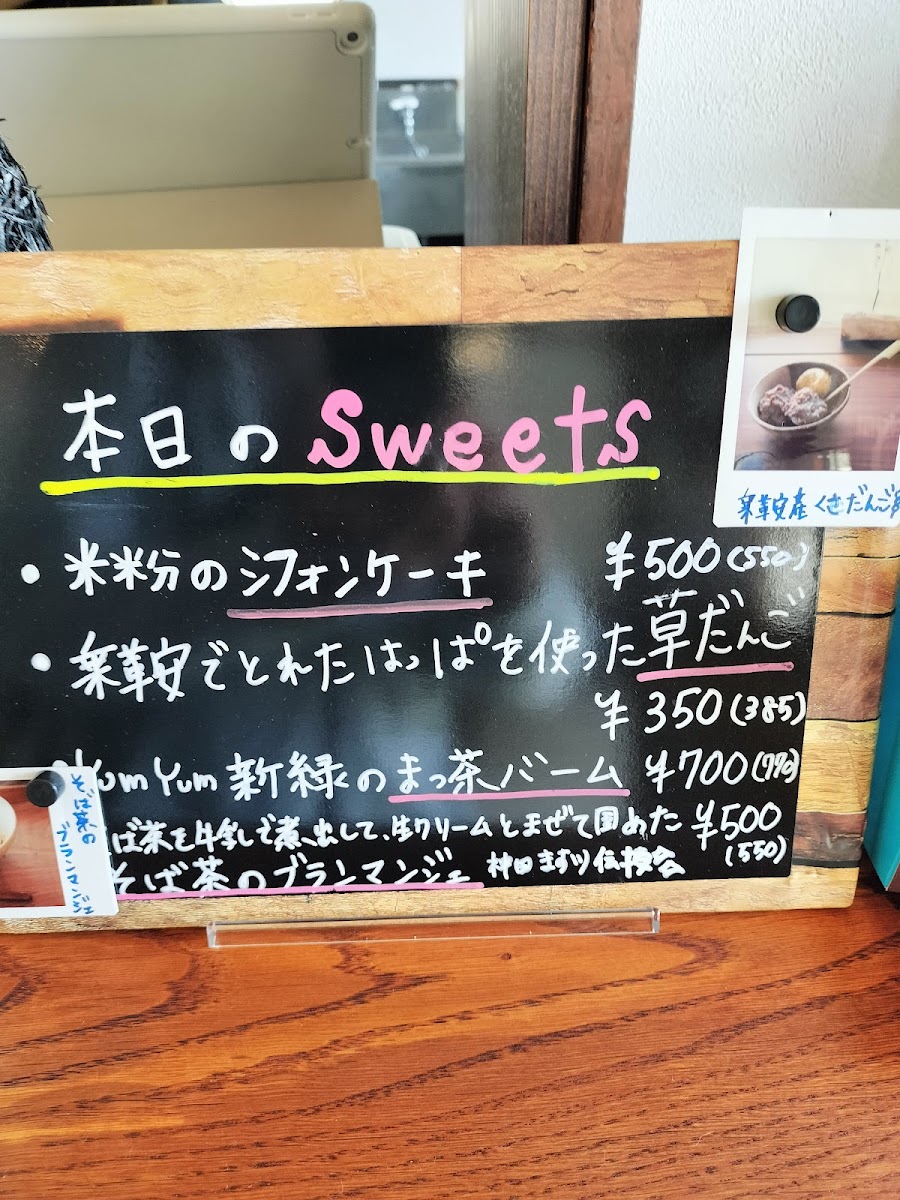 本日のSweets
・米粉のシフォンケーキ ¥500(550)
・巣鞍安でとれたはっぱを使った草だんご
¥350(385)
Yum Yum 新緑のまっ茶バーム ¥700(770)
ば茶を牛乳で煮出して、生クリームとまぜて固めた ¥500
そば茶のブランマンジェ 神田 (550)
くさだんご
そば茶の
ブランマンジェ